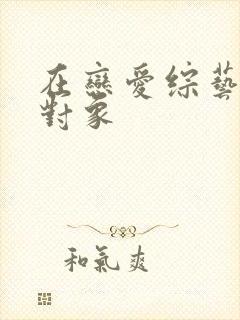 在戀愛綜藝
對象
和氣爽